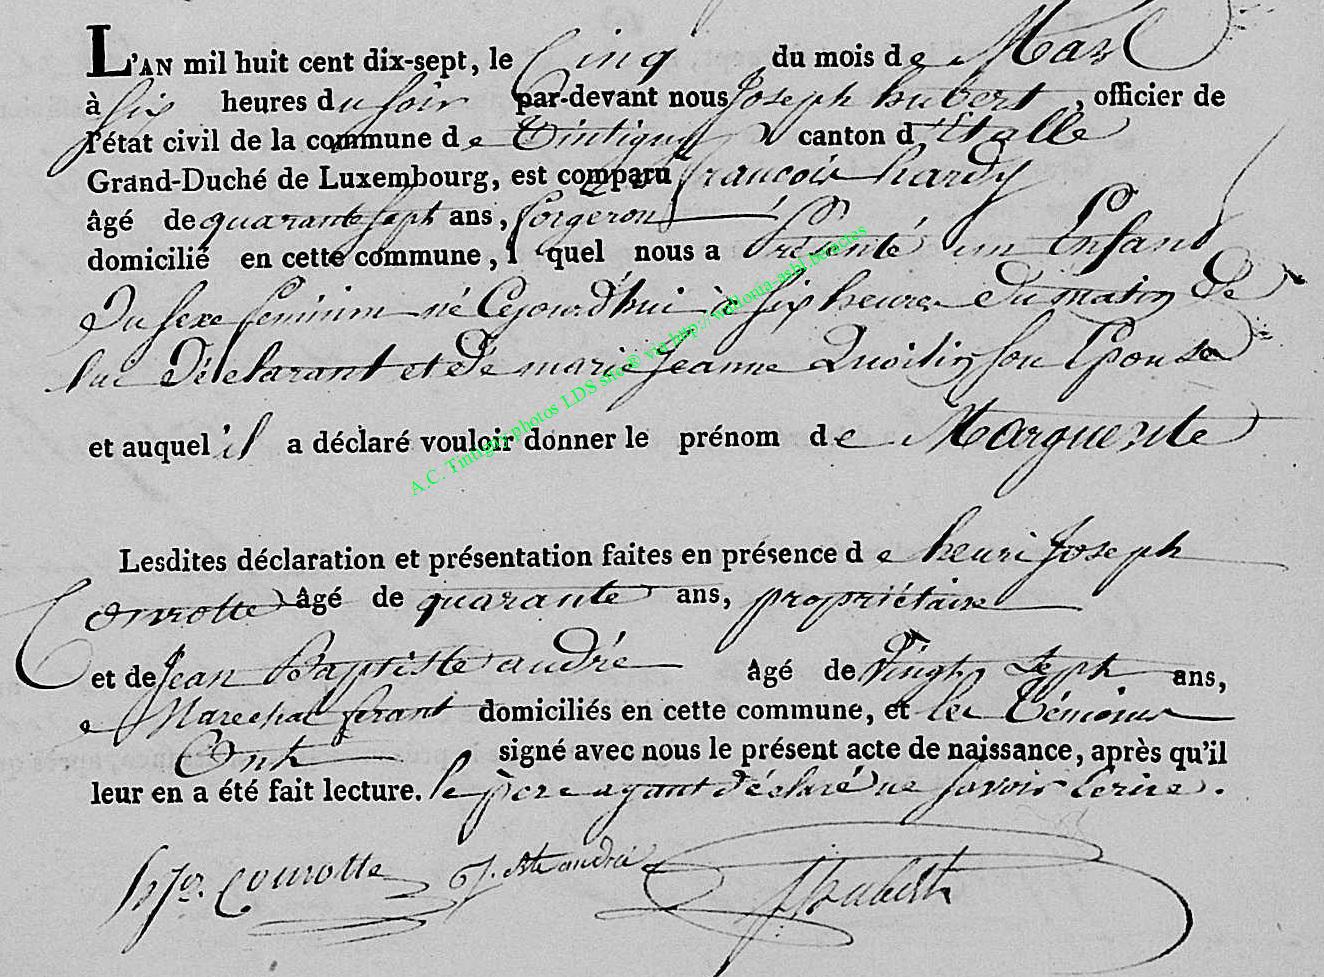 L'AN mil huit cent dix-sept, le Cinq du mois de Mars
à six heures du soir par-devant nous Joseph hubert, officier de
l'état civil de la commune de Tintigny canton d'Etalle
Grand-Duché de Luxembourg, est comparu francois hardy
âgé de quarante sept ans, forgeron
domicilié en cette commune, lequel nous a Présenté un Enfant
Du sexe feminin né Cejourd'hui à six heures du matin de
lui Déclarant et de marie Jeanne Quoitin son Epouse
et auquel il a déclaré vouloir donner le prénom de Marguerite
Lesdites déclaration et présentation faites en présence de henri Joseph
Courotte âgé de quarante ans, propriétaire
et de Jean Baptiste andré âgé de vingt sept ans,
Marechal ferant domiciliés en cette commune, et les Témoins
Ont signé avec nous le présent acte de naissance, après qu'il
leur en a été fait lecture. le père ayant déclaré ne savoir Ecrire.
hjo. Courotte J. Bte andré J hubert
A.C. Tintigny photos LDS site® via http://wallonia-asbl.be/actes